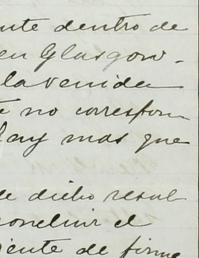 nte dentro de
en Glasgow.
la venida
no correspon
Hay mas que
de dicho resul
concluir el
iente de firme